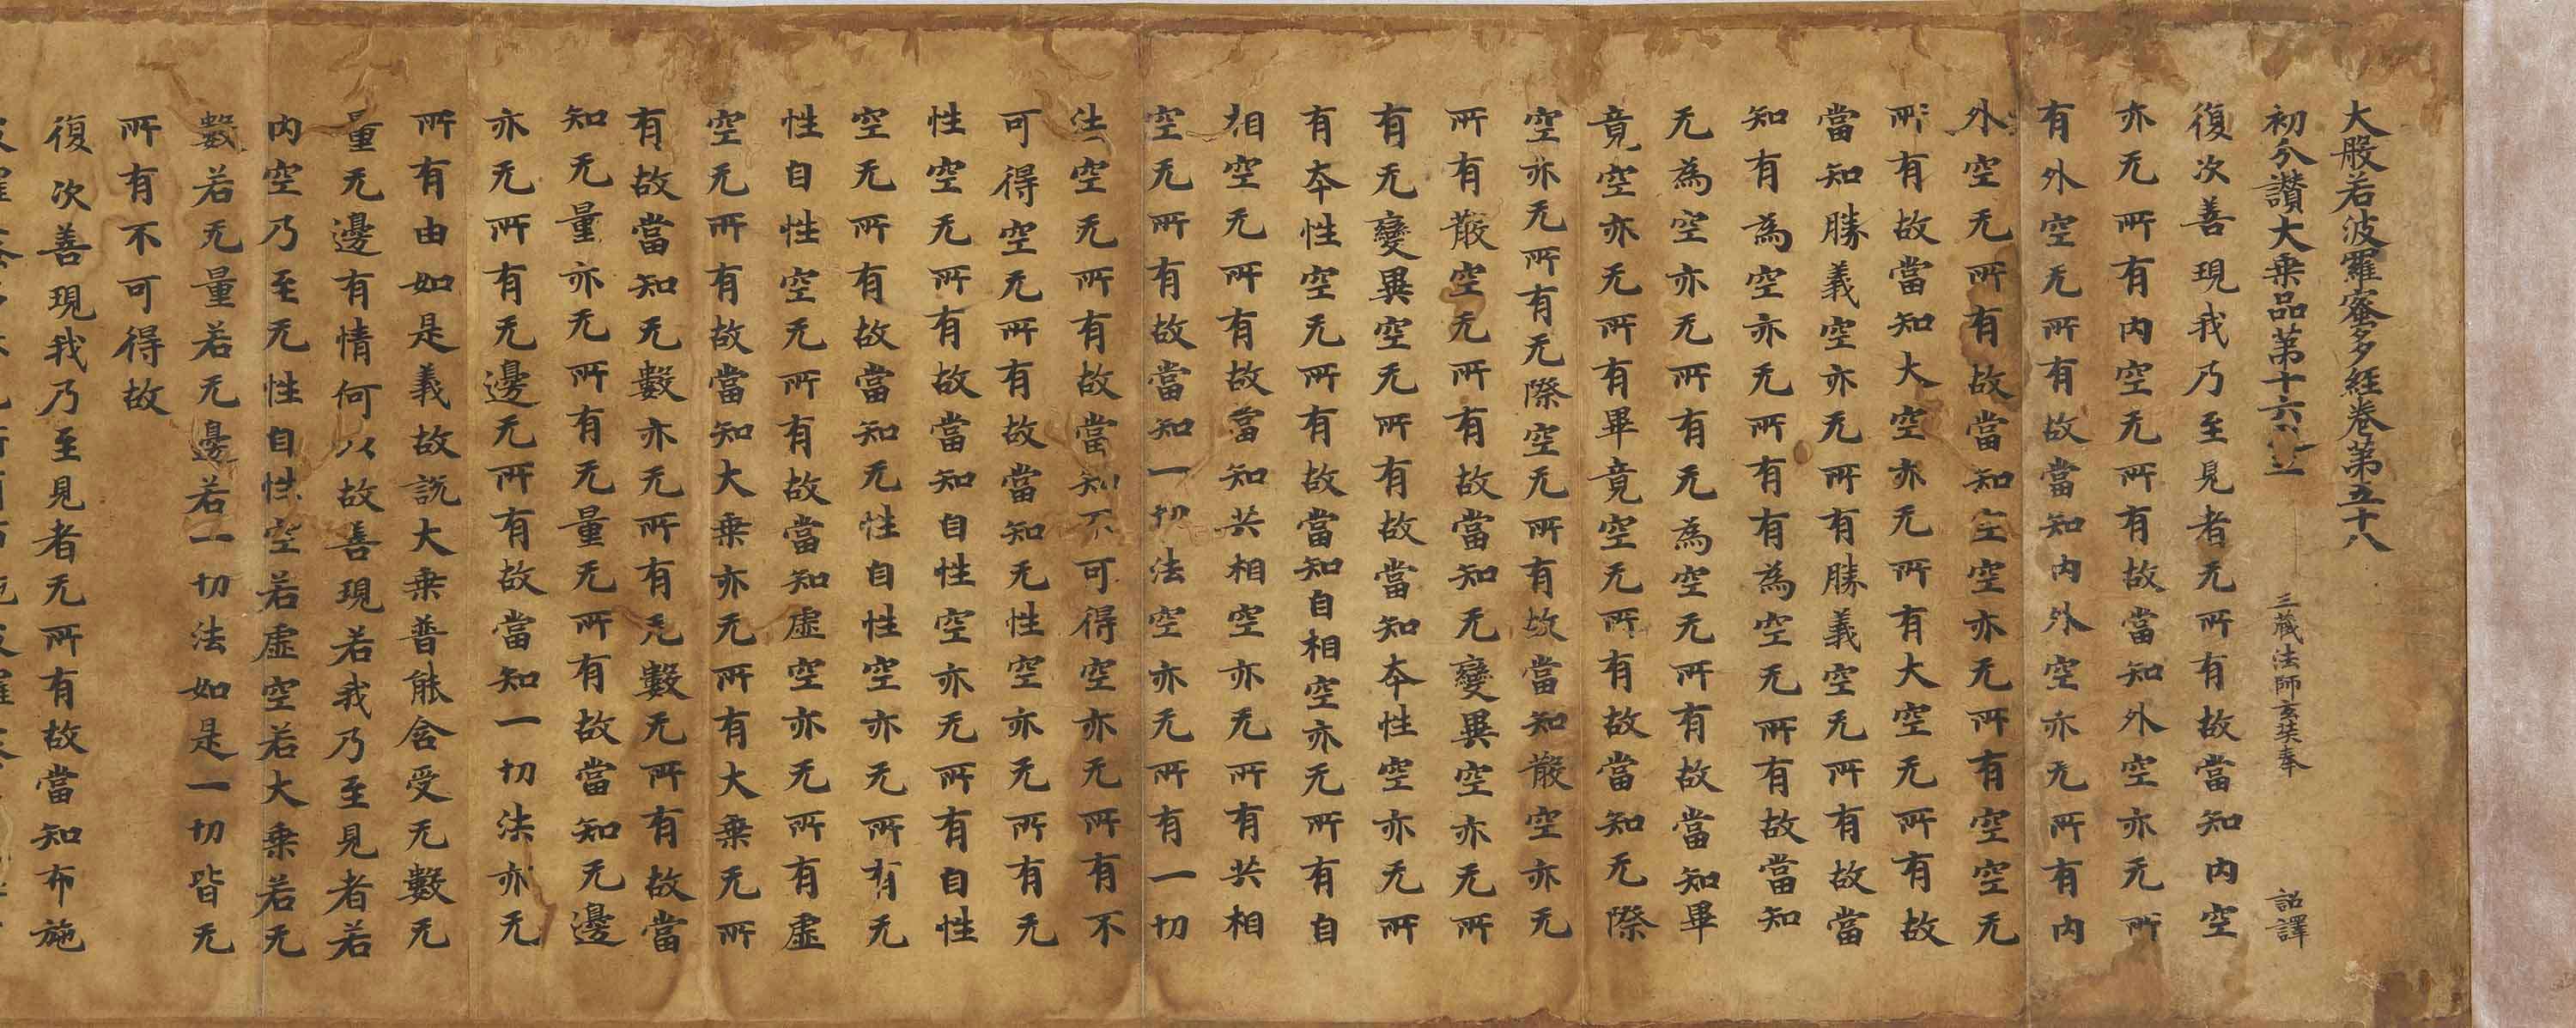 大般若波羅蜜多經卷第五十八
初分讃大乗品第十六 三藏法師玄奘奉 詔譯
復次善現我乃至見者无所有故當知内空
亦无所有内空无所有故當知外空亦无所
有外空无所有故當知内外空亦无所有内
外空无所有故當知空空亦无所有空空无
所有故當知大空亦无所有大空无所有故
當知勝義空亦无所有勝義空无所有故當
知有為空亦无所有有為空无所有故當知
无為空亦无所有无為空无所有故當知畢
竟空亦无所有畢竟空无所有故當知无際
空亦无所有无際空无所有故當知散空亦无
所有散空无所有故當知无變異空亦无所
有无變異空无所有故當知本性空亦无所
有本性空无所有故當知自相空亦无所有自
相空无所有故當知共相空亦无所有共相
空无所有故當知一切法空亦无所有一切
法空无所有故當知不可得空亦无所有不
可得空无所有故當知无性空亦无所有无
性空无所有故當知自性空亦无所有自性
空无所有故當知无性自性空亦无所有无
性自性空无所有故當知虚空亦无所有虚
空无所有故當知大乗亦无所有大乗无所
有故當知无數亦无所有无數无所有故當
知无量亦无所有无量无所有故當知无邊
亦无所有无邊无所有故當知一切法亦无
所有由如是義故説大乗普能含受无數无
量无邊有情何以故善現若我乃至見者若
内空乃至无性自性空若虚空若大乗若无
數若无量若无邊若一切法如是一切皆无
所有不可得故
復次善現我乃至見者无所有故當知布施